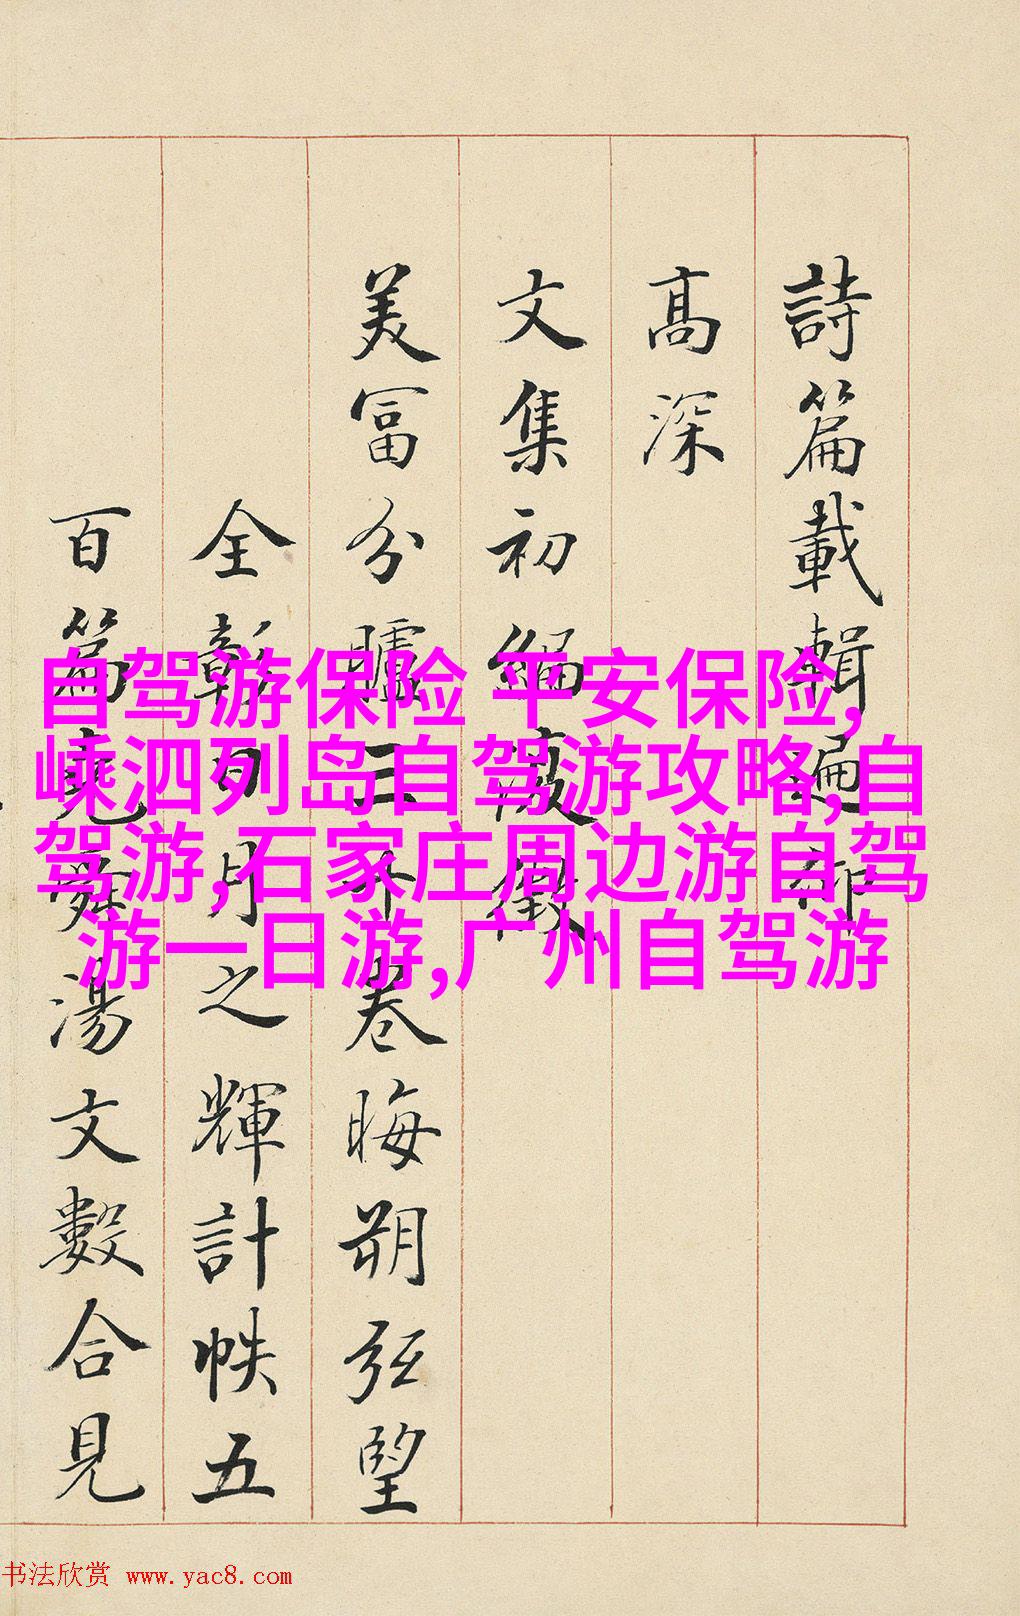 詩篇載輯遍部
高深
文集初編復徵
美富分臚三十卷晦朔弦望
全彰日月之輝計帙五
百篇堯舜湯文數合見
自驾游保险 平安保险,
嵊泗列岛自驾游攻略,自
驾游,石家庄周边游自驾
游一日游,广州自驾游
书法欣赏 www.yac8.com